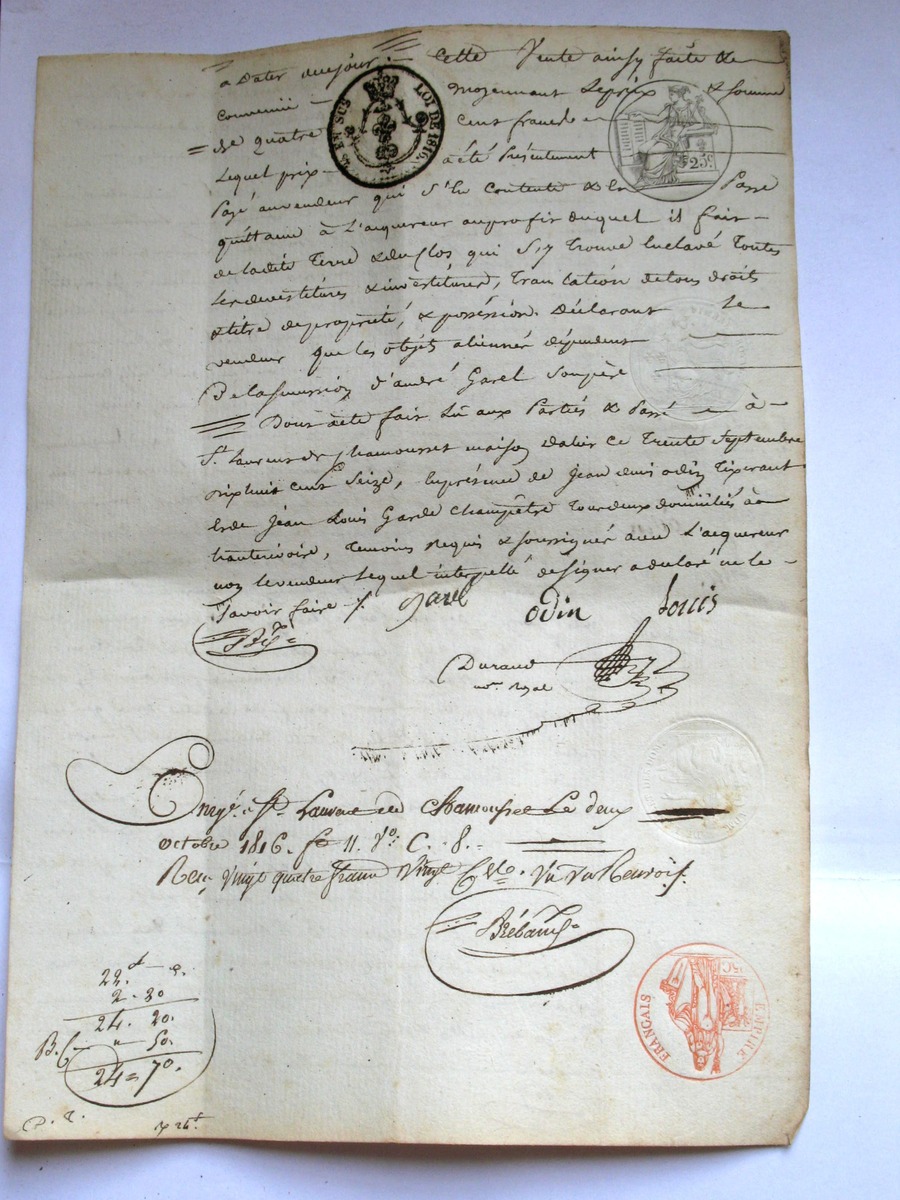 a Dater du jour. - Cette Vente ainsy faite &
convenue - moyennant Le prix & somme
de quatre cent francs
EN SUS LOI DE 1816.
25c
Lequel prix - a été Présentement
Payé au vendeur qui S'en Contente & en Passe
quittance à L'acquereur au profit duquel il fait -
de la dite Terre & du clos qui S'y Trouve Enclavé Toutes
Les devestitures & investitures, translation de tous droits
& titre de propriété, & posséssion. Déclarant Le
vendeur que les objets alienné dépendent
De la sucession d'andré Garel Son père
Dont acte fait Lu aux Partiés & Passé à -
St. Laurent de Chamousset maison d'abis Ce Trente Septembre
dix huit Cent Seize, En présence de Jean denis odin Tixerant
& de Jean Louis Garde Champêtre Tous deux domiciliés à
hauterivoire, Temoins Requis & Soussignés avec L'acquereur
non le vendeur Lequel interpellé de Signer a declaré ne le
Savoir faire /. garel odin Louis
Durand
nre. Royal
Enregé. à St. Laurent de Chamousset Le deux
Octobre 1816. fo 11. Vo. C. 8. -
Reçu Vingt quatre francs Vingt Cmes.
Rébaud
22.f - c.
2 - 20
24. 20.
B. - " - 50.
24 = 70.
EMPIRE FRANÇAIS